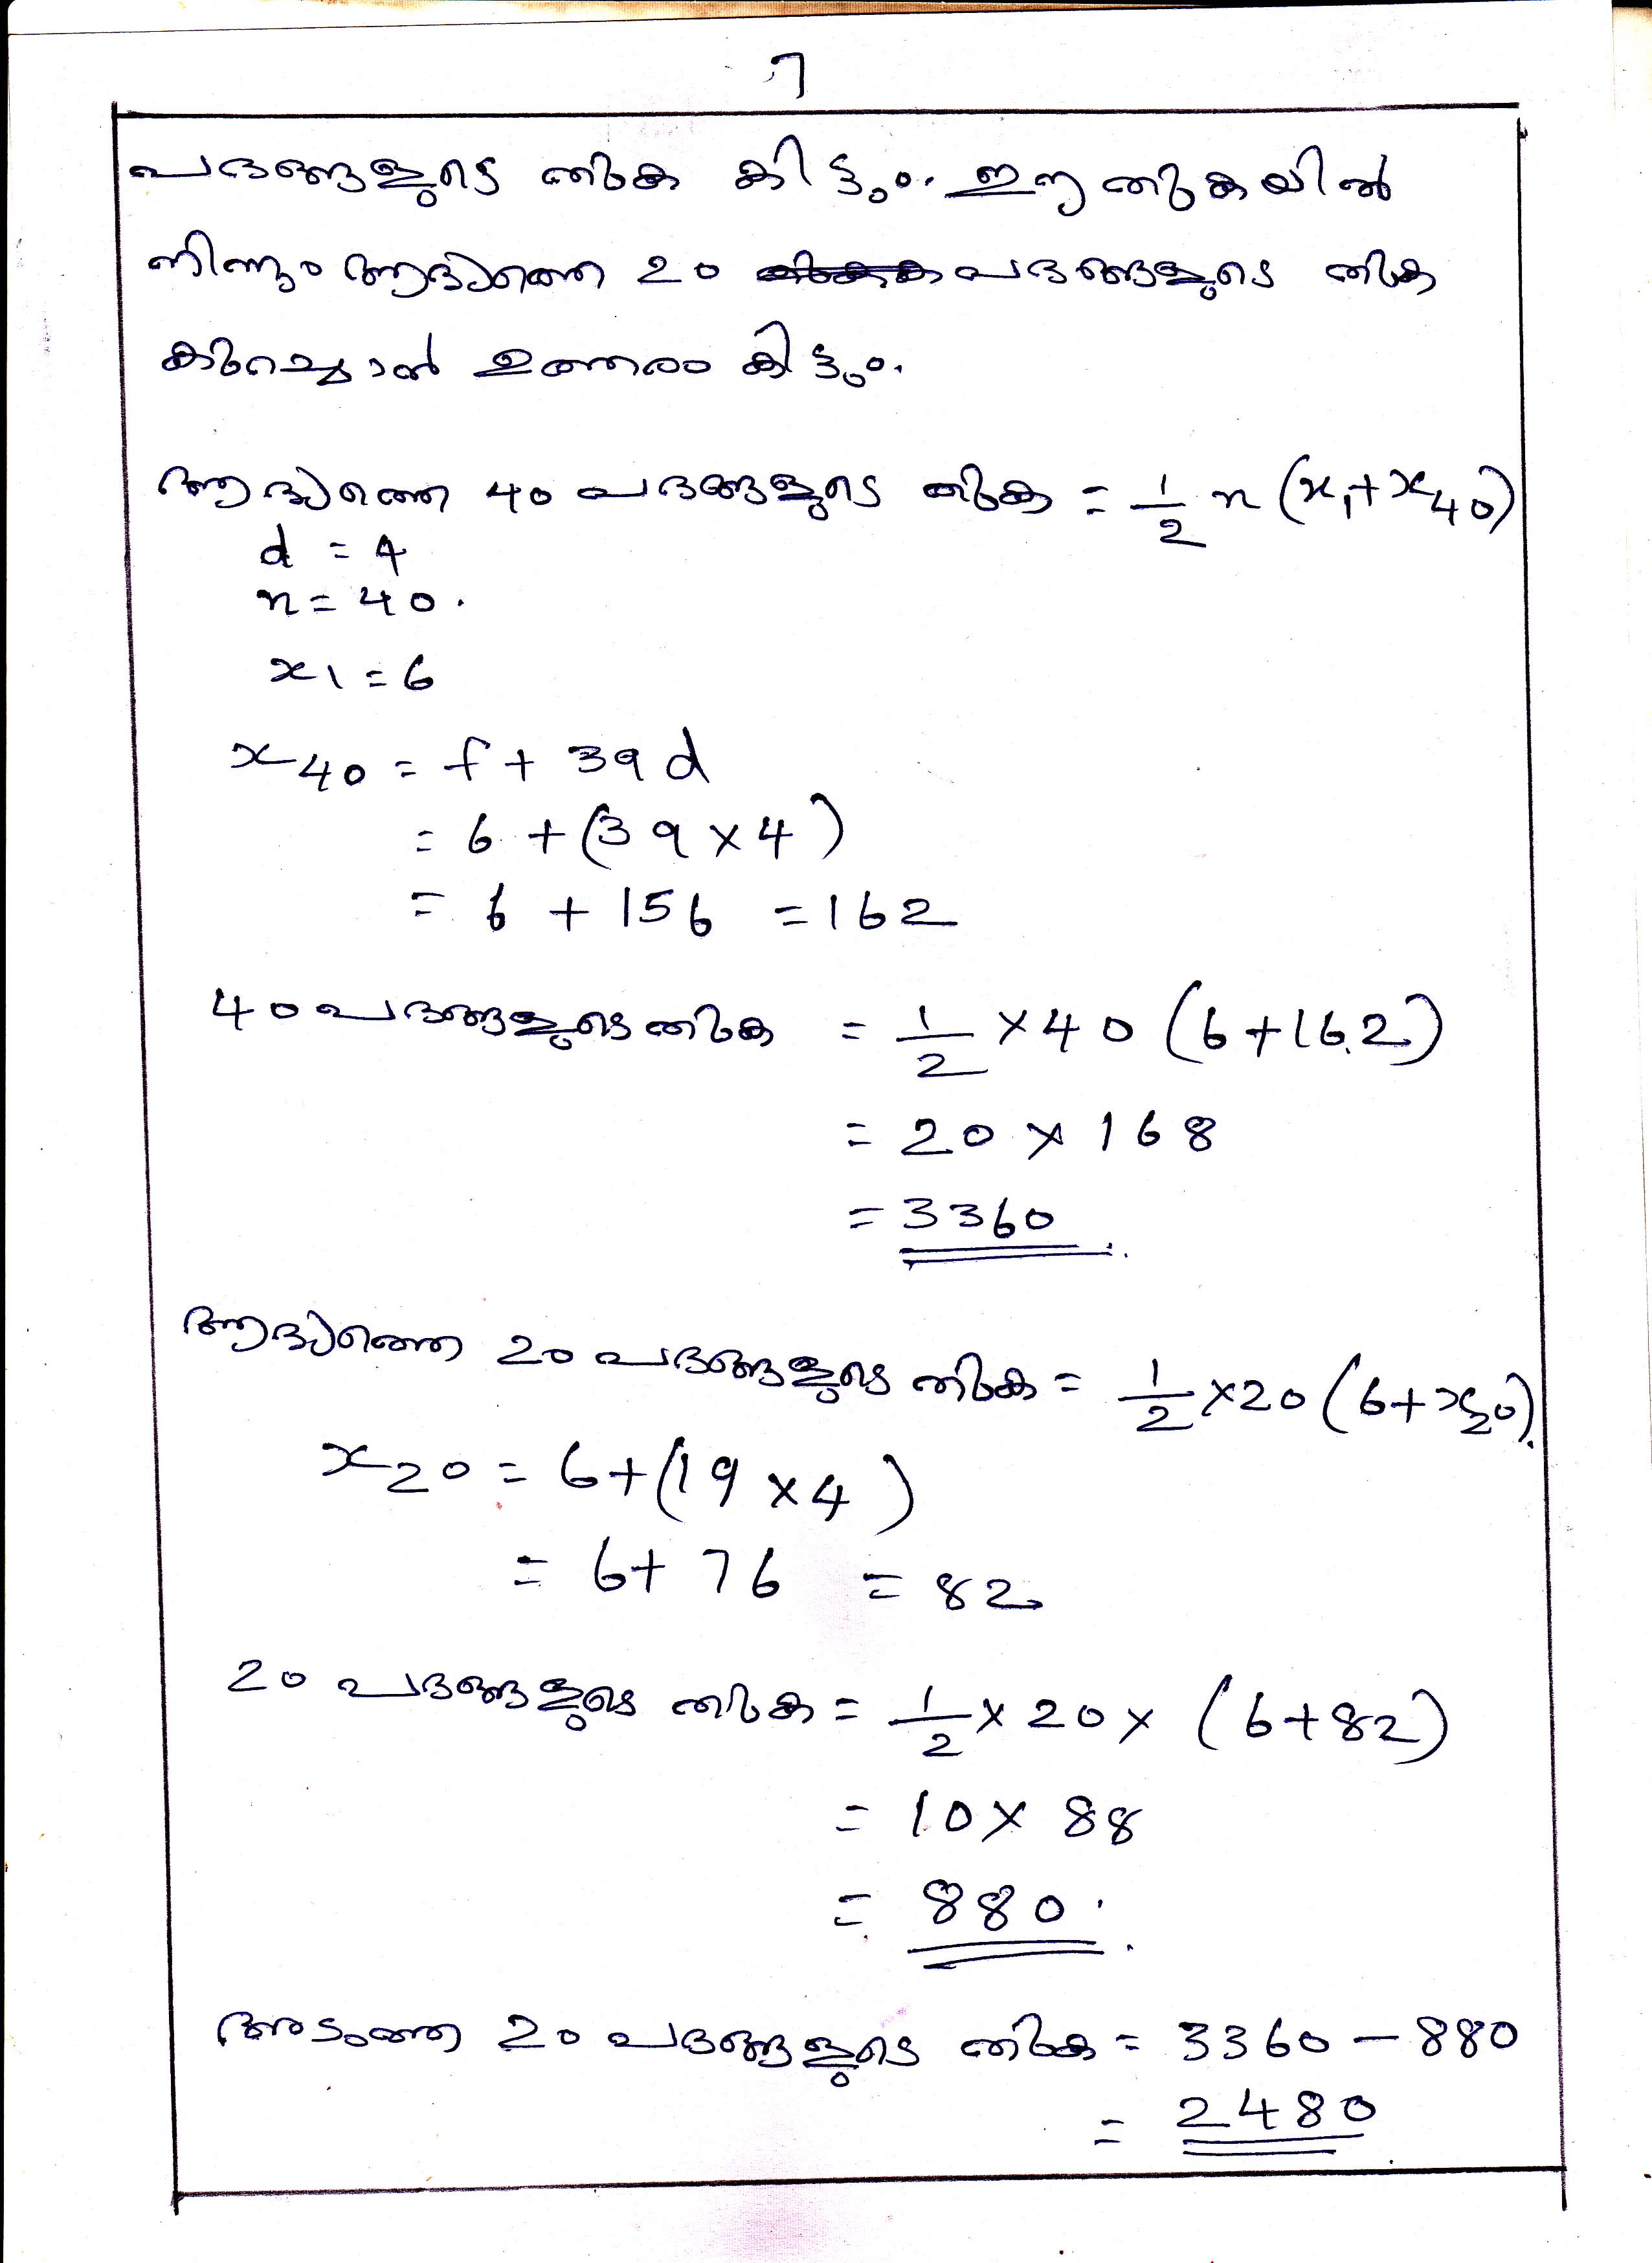 7
പദങ്ങളുടെ തുക കിട്ടും. ഈ തുകയിൽ
നിന്നും ആദ്യത്തെ 20 പദങ്ങളുടെ തുക
കുറച്ചാൽ ഉത്തരം കിട്ടും.
ആദ്യത്തെ 40 പദങ്ങളുടെ തുക = 1/2 n (x₁ + x₄₀)
d = 4
n = 40.
x1 = 6
x₄₀ = f + 39 d
= 6 + (39 × 4)
= 6 + 156 = 162
40 പദങ്ങളുടെ തുക = 1/2 × 40 (6 + 162)
= 20 × 168
= 3360
ആദ്യത്തെ 20 പദങ്ങളുടെ തുക = 1/2 × 20 (6 + x₂₀).
x₂₀ = 6 + (19 × 4)
= 6 + 76 = 82
20 പദങ്ങളുടെ തുക = 1/2 × 20 × (6 + 82)
= 10 × 88
= 880.
അടുത്ത 20 പദങ്ങളുടെ തുക = 3360 − 880
= 2480